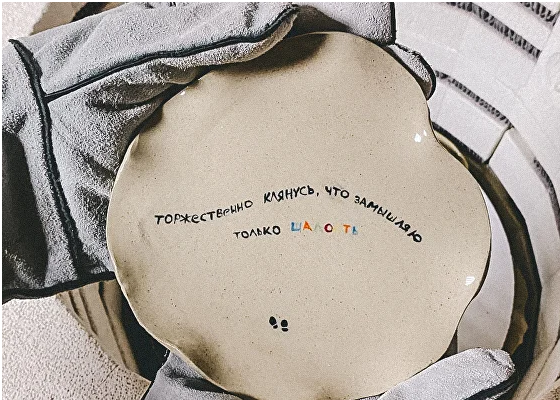 ТОРЖЕСТВЕННО КЛЯНУСЬ, ЧТО ЗАМЫШЛЯЮ
ТОЛЬКО ШАЛОСТЬ